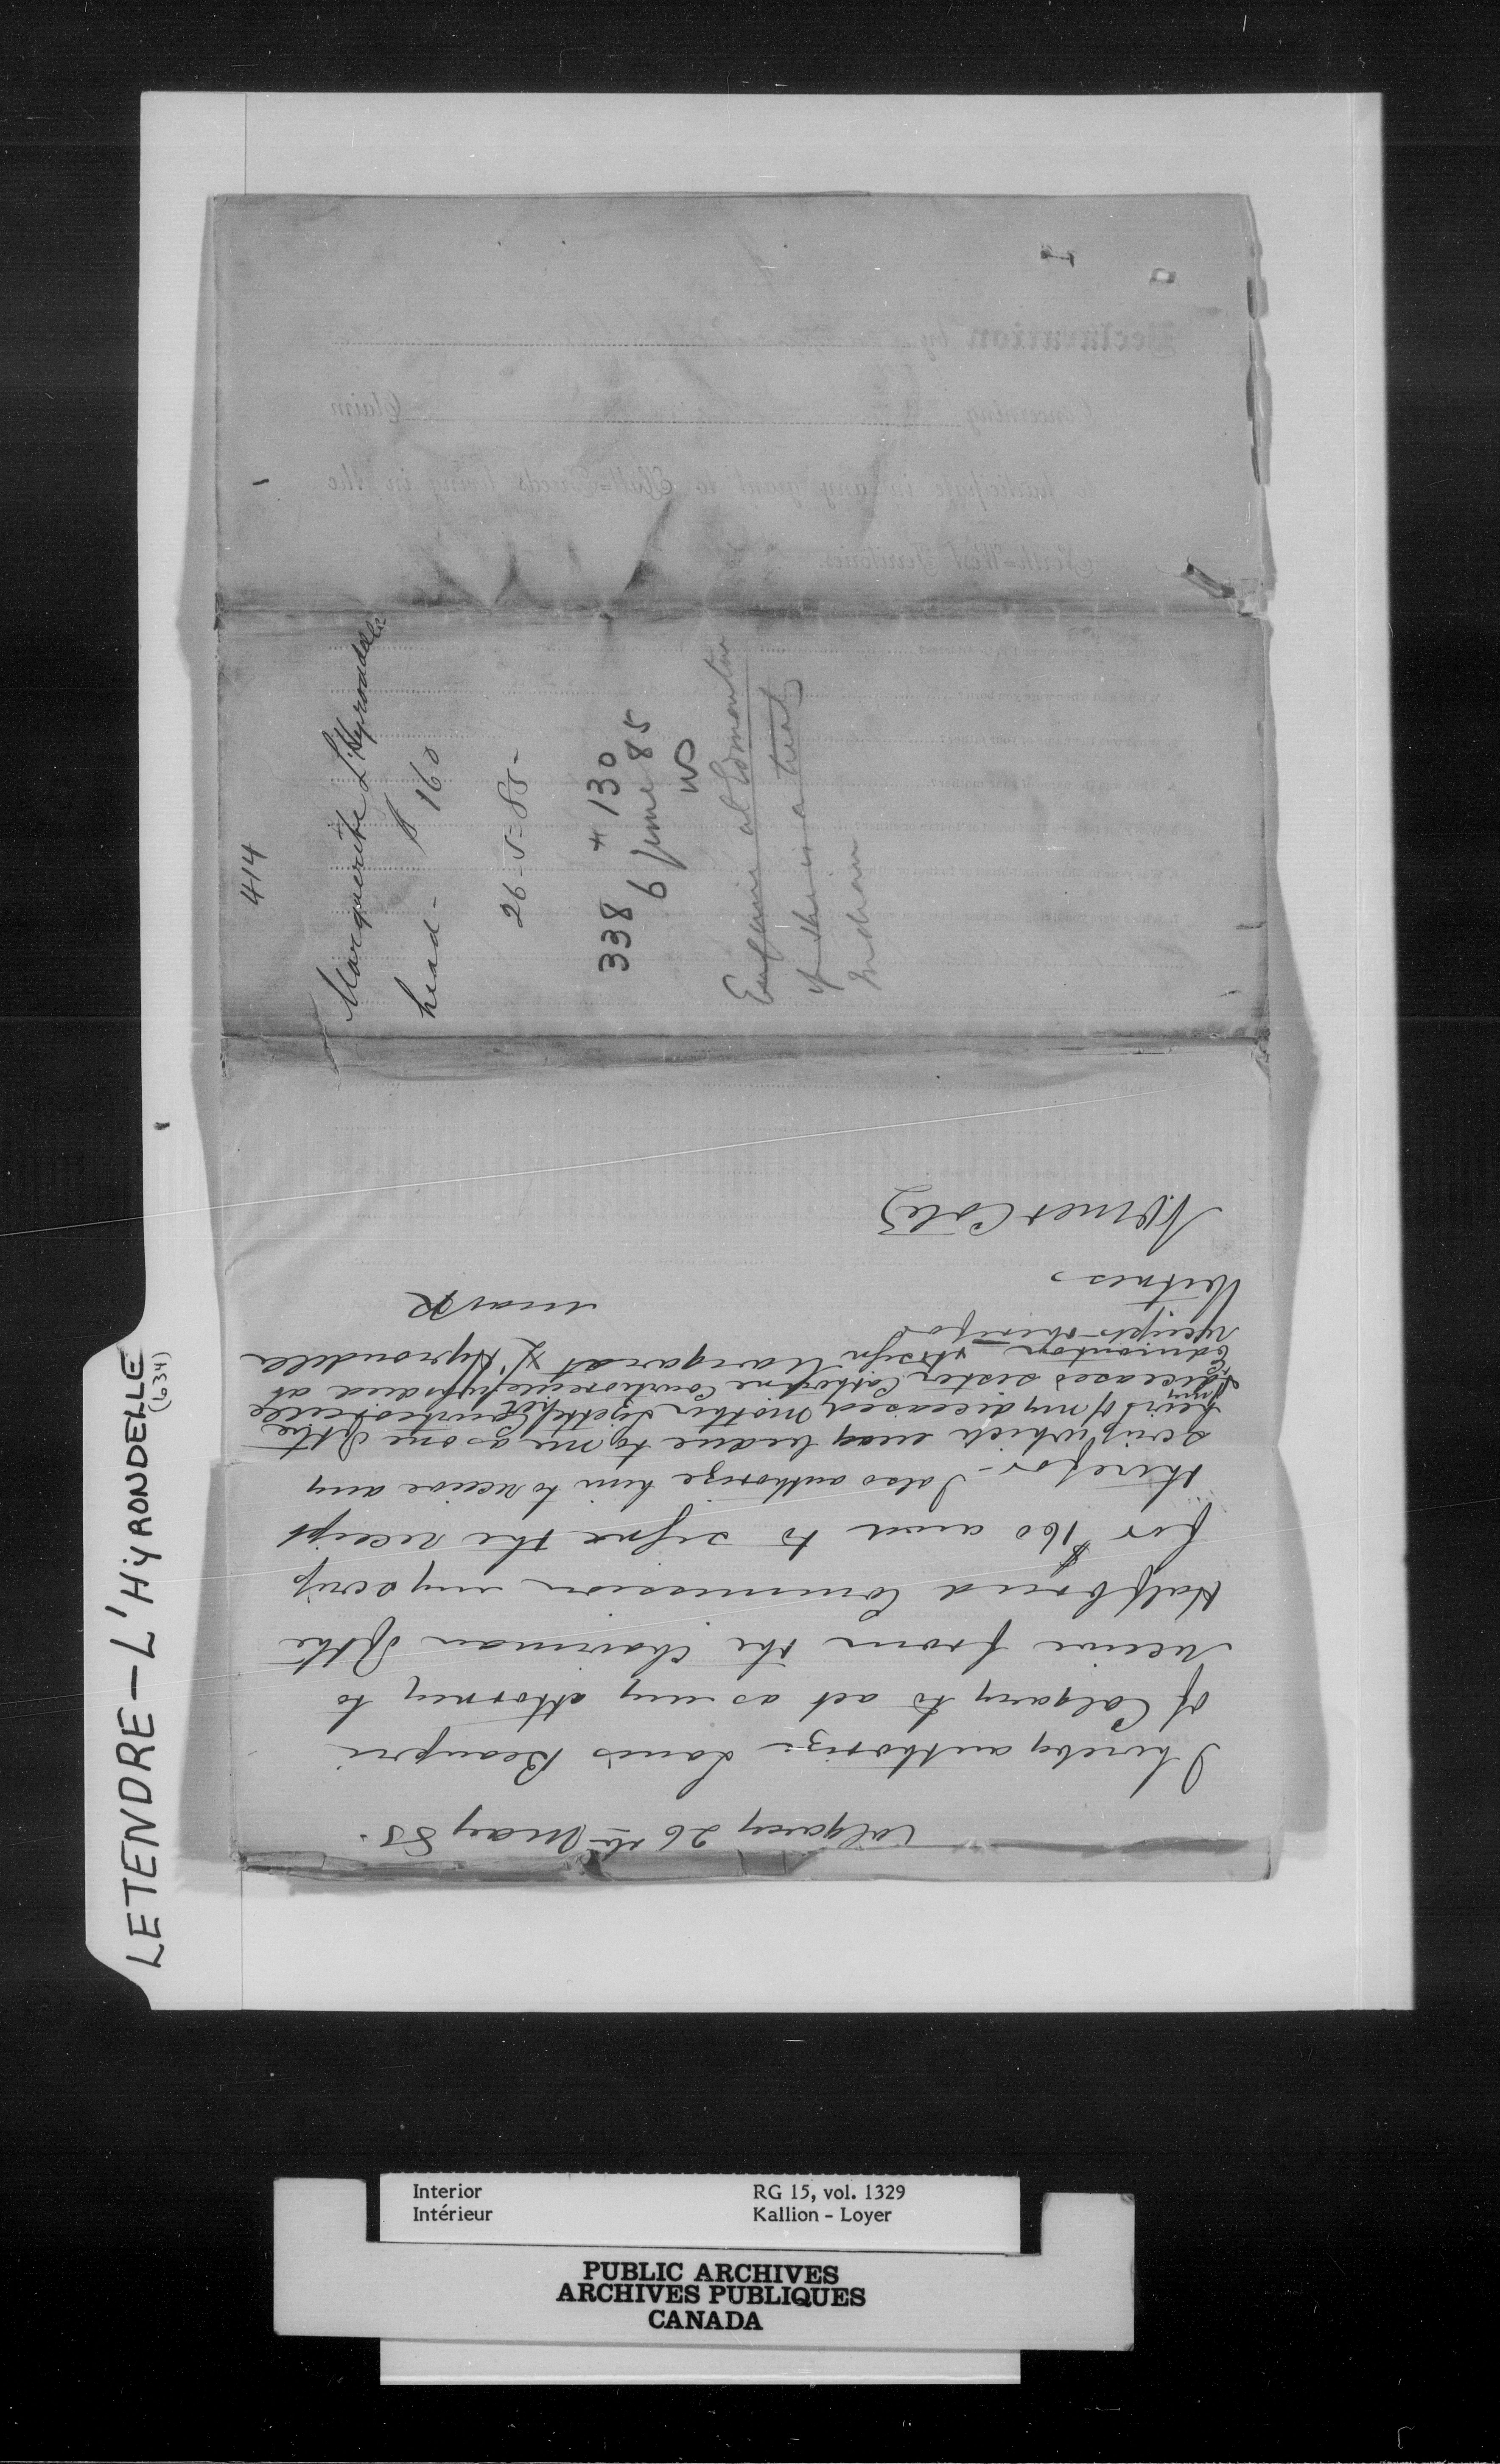 LETENDRE - L'HYRONDELLE
(634)
414
Marguerite L'Hyrondelle
head - $160
26-5-85-
338 + 130
6 June 85
Enquire at Edmonton
if she is a treaty
Indian
Calgary 26th May 85.
I hereby authorize Louis Beaupré
of Calgary to act as my attorney to
receive from the Chairman of the
Halfbreed Commission my scrip
for $160 and to sign the receipt
therefor - I also authorize him to receive any
scrip which may be due to me as one of the
heirs of my deceased mother Lizette Courtoreille
& my deceased sister Catherine Courtoreille at
Edmonton & to sign
receipts therefor
Margaret L'Hyrondelle
mark
Witness
N. Omer Coté
Declaration by
Concerning Claim
to participate in any grant to Half-Breeds living in the
North-West Territories.
Interior
Intérieur
RG 15, vol. 1329
Kallion - Loyer
PUBLIC ARCHIVES
ARCHIVES PUBLIQUES
CANADA